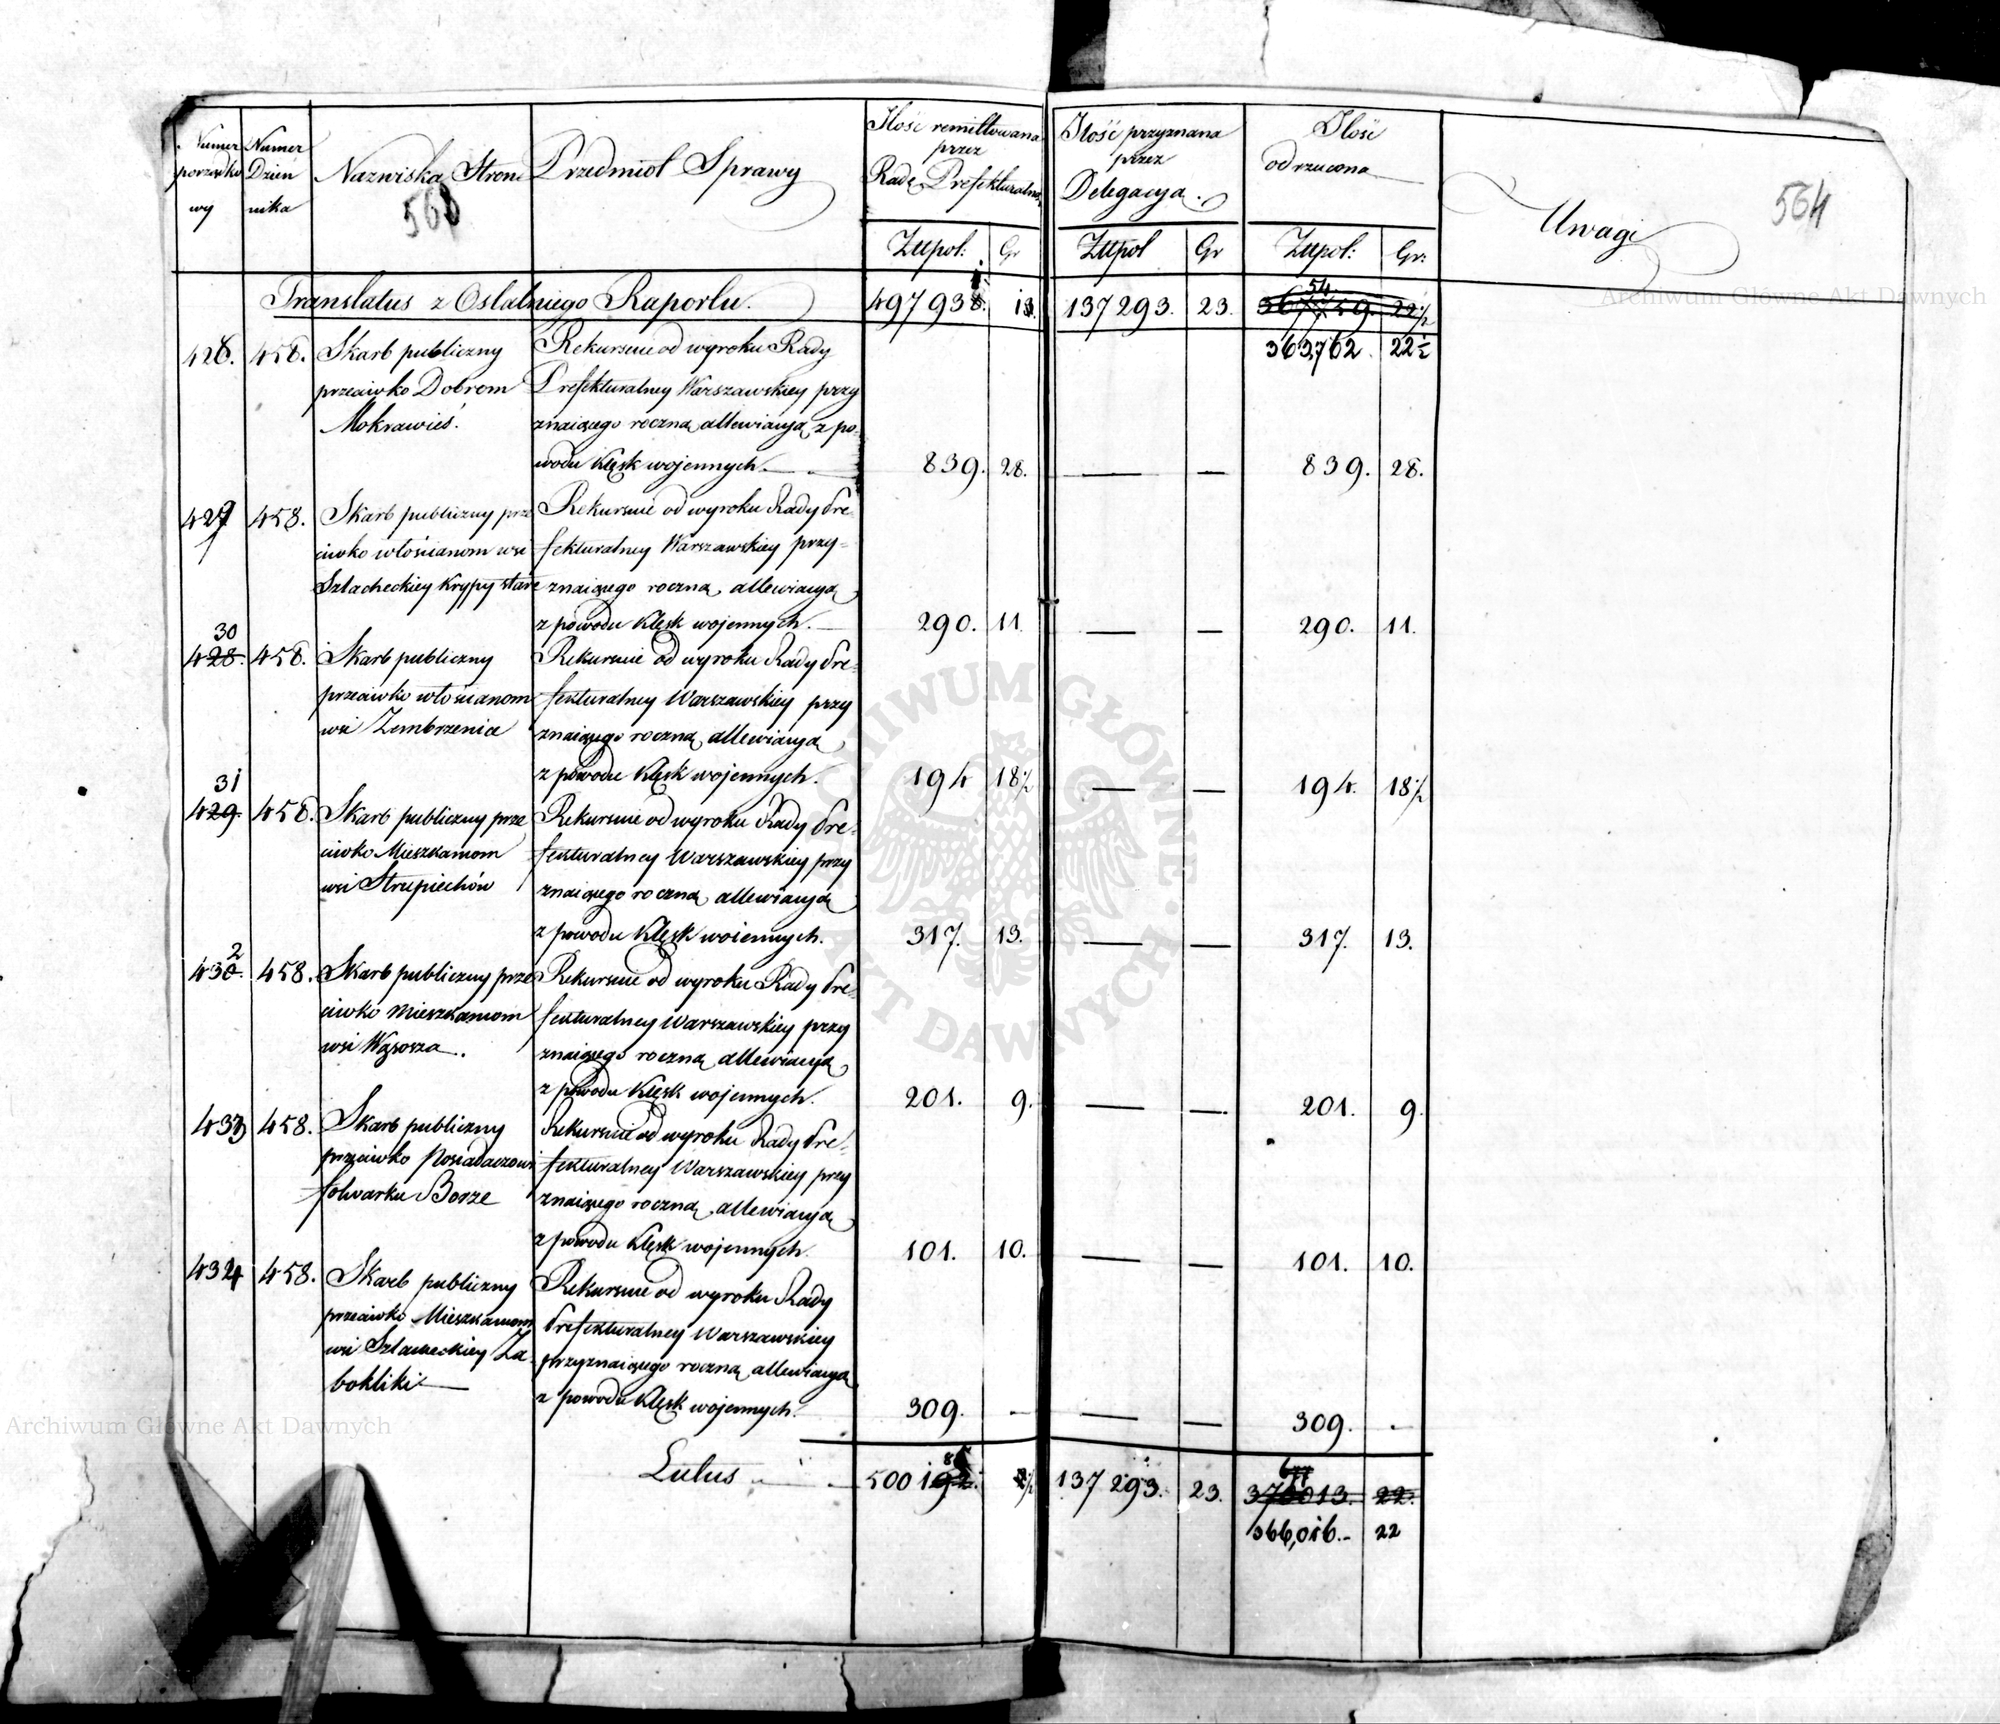 Numer porządko wy
Numer Dzien nika
Nazwiska Stron
Przedmiot Sprawy
Ilość remittowana przez Radę Prefekturalną
Ilość przyznana przez Delegacyą.
Ilość odrzucona
Uwagi
564
Złłpol: Gr
Złłpol Gr
Złłpol: Gr:
Translatus z Ostatniego Raportu. 137293. 23.
363762. 22½
428. 458. Skarb publiczny
przeciwko Dobrom
Mokrawieś.
Rekursuie od wyroku Rady
Prefekturalney Warszawskiey przy
znaiącego roczną allewiacyą z po-
wodu klęsk wojennych. 839. 28. — — 839. 28.
429 458. Skarb publiczny prze
ciwko włościanom wsi
Szlacheckiey Krypy stare
Rekursuie od wyroku Rady Pre-
fekturalney Warszawskiey przy-
znaiącego roczną allewiacyą
z powodu klęsk wojennych. 290. 11. — — 290. 11.
30
428. 458. Skarb publiczny
przeciwko włościanom
wsi Zembrzenia
Rekursuie od wyroku Rady Pre-
fekturalney Warszawskiey przy
znaiącego roczną allewiacyą
z powodu klęsk wojennych. 194 18½ — — 194. 18½
31
429. 458. Skarb publiczny prze
ciwko Mieszkancom
wsi Strupiechów
Rekursuie od wyroku Rady Pre-
fekturalney Warszawskiey przy
znaiącego roczną allewiacyą
z powodu klęsk woiennych. 317. 13. — — 317. 13.
2
430. 458. Skarb publiczny prze
ciwko Mieszkancom
wsi Wąsosza.
Rekursuie od wyroku Rady Pre-
fekturalney Warszawskiey przy
znaiącego roczną allewiacyą
z powodu klęsk wojennych. 201. 9. — — 201. 9.
433 458. Skarb publiczny
przeciwko Posiadaczowi
folwarku Borze
Rekursuie od wyroku Rady Pre-
fekturalney Warszawskiey przy
znaiącego roczną allewiacyą
z powodu klęsk wojennych. 101. 10. — — 101. 10.
434 458. Skarb publiczny
przeciwko Mieszkancom
wsi Szlacheckiey Za-
bokliki
Rekursuie od wyroku Rady
Prefekturalney Warszawskiey
przyznaiącego roczną allewiacyą
z powodu klęsk wojennych. 309. — — — 309. -
Lutus 137293. 23.
366,016.- 22
Archiwum Główne Akt Dawnych
Archiwum Główne Akt Dawnych
ARCHIWUM GŁÓWNE AKT DAWNYCH